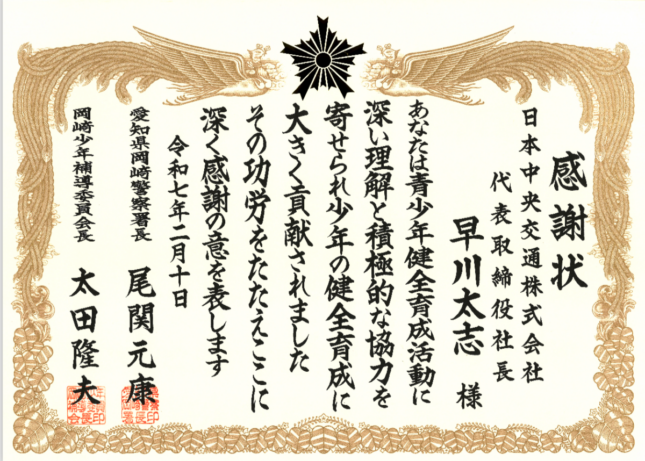 感謝状
日本中央交通株式会社
代表取締役社長
早川太志 様
あなたは青少年健全育成活動に
深い理解と積極的な協力を
寄せられ少年の健全育成に
大きく貢献されました
その功労をたたえここに
深く感謝の意を表します
令和七年二月十日
愛知県岡崎警察署長 尾関元康
岡崎少年補導委員会長 太田隆夫